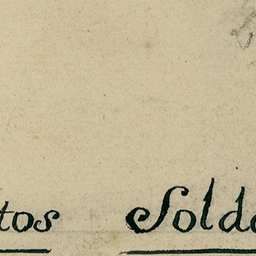 tos Solda